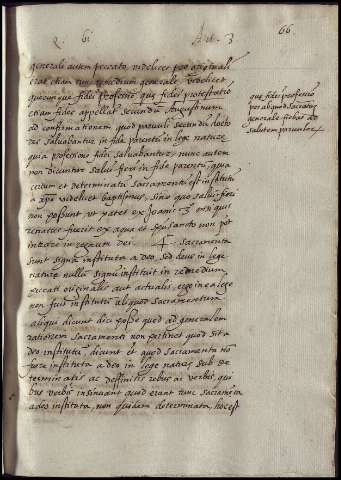 q. 61 Art. 3 66
generale autem peccato, videlicet pro originali
erat etiam unum remedium generale videlicet
quecunque fidei professio, que fidei protestatio
etiam fides appellat secundum Augustinum
ad confirmationem quod parvuli secundum docto
res salvabantur in fide parentum in lege nature
quia professione fidei salvabantur, nunc autem
non dicuntur salui fieri in fide parentum, quia
certum et determinatum sacramentum est institutum
a xpo videlicet baptismus, sine quo salui fieri
non possunt ut patet ex Joannis 3 nisi quis
renatus fuerit ex aqua et spu sancto non pot
intrare in regnum dei. sacramenta
sunt signa instituta a deo, sed deus in lege
nature nullum signum instituit in remedium
peccati originalis aut actualis, ergo in ea lege
non fuit institutum aliquod sacramentum
aliqui dicunt posse quod ad generalem
rationem sacramenti non pertinet quod sit a
deo institutum, dicunt et quod sacramenta no
fuere instituta a deo in lege nature sub de
terminatis ac definitis rebus ac verbis, qui
bus verbis insinuant quod erant tunc sacramenta
a deo instituta, non quidem determinata, hoc est
que fidei professio
per aliquod sacramentum
generale fiebat ad
salutem parvulorum